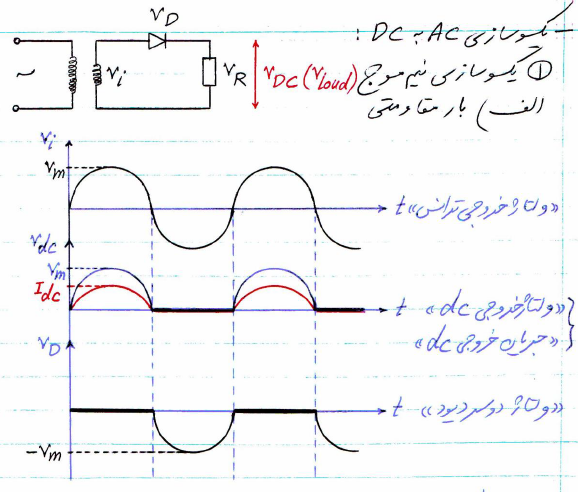 - یکسوسازی AC به DC :
① یکسوسازی نیم موج
الف) بار مقاومتی
VD
~
Vi
VR
VDC (Vloud)
Vi
Vm
t «ولتاژ خروجی ترانس»
Vdc
Vm
Idc
t «ولتاژ خروجی dc»
«جریان خروجی dc»
VD
t «ولتاژ دوسر دیود»
-Vm